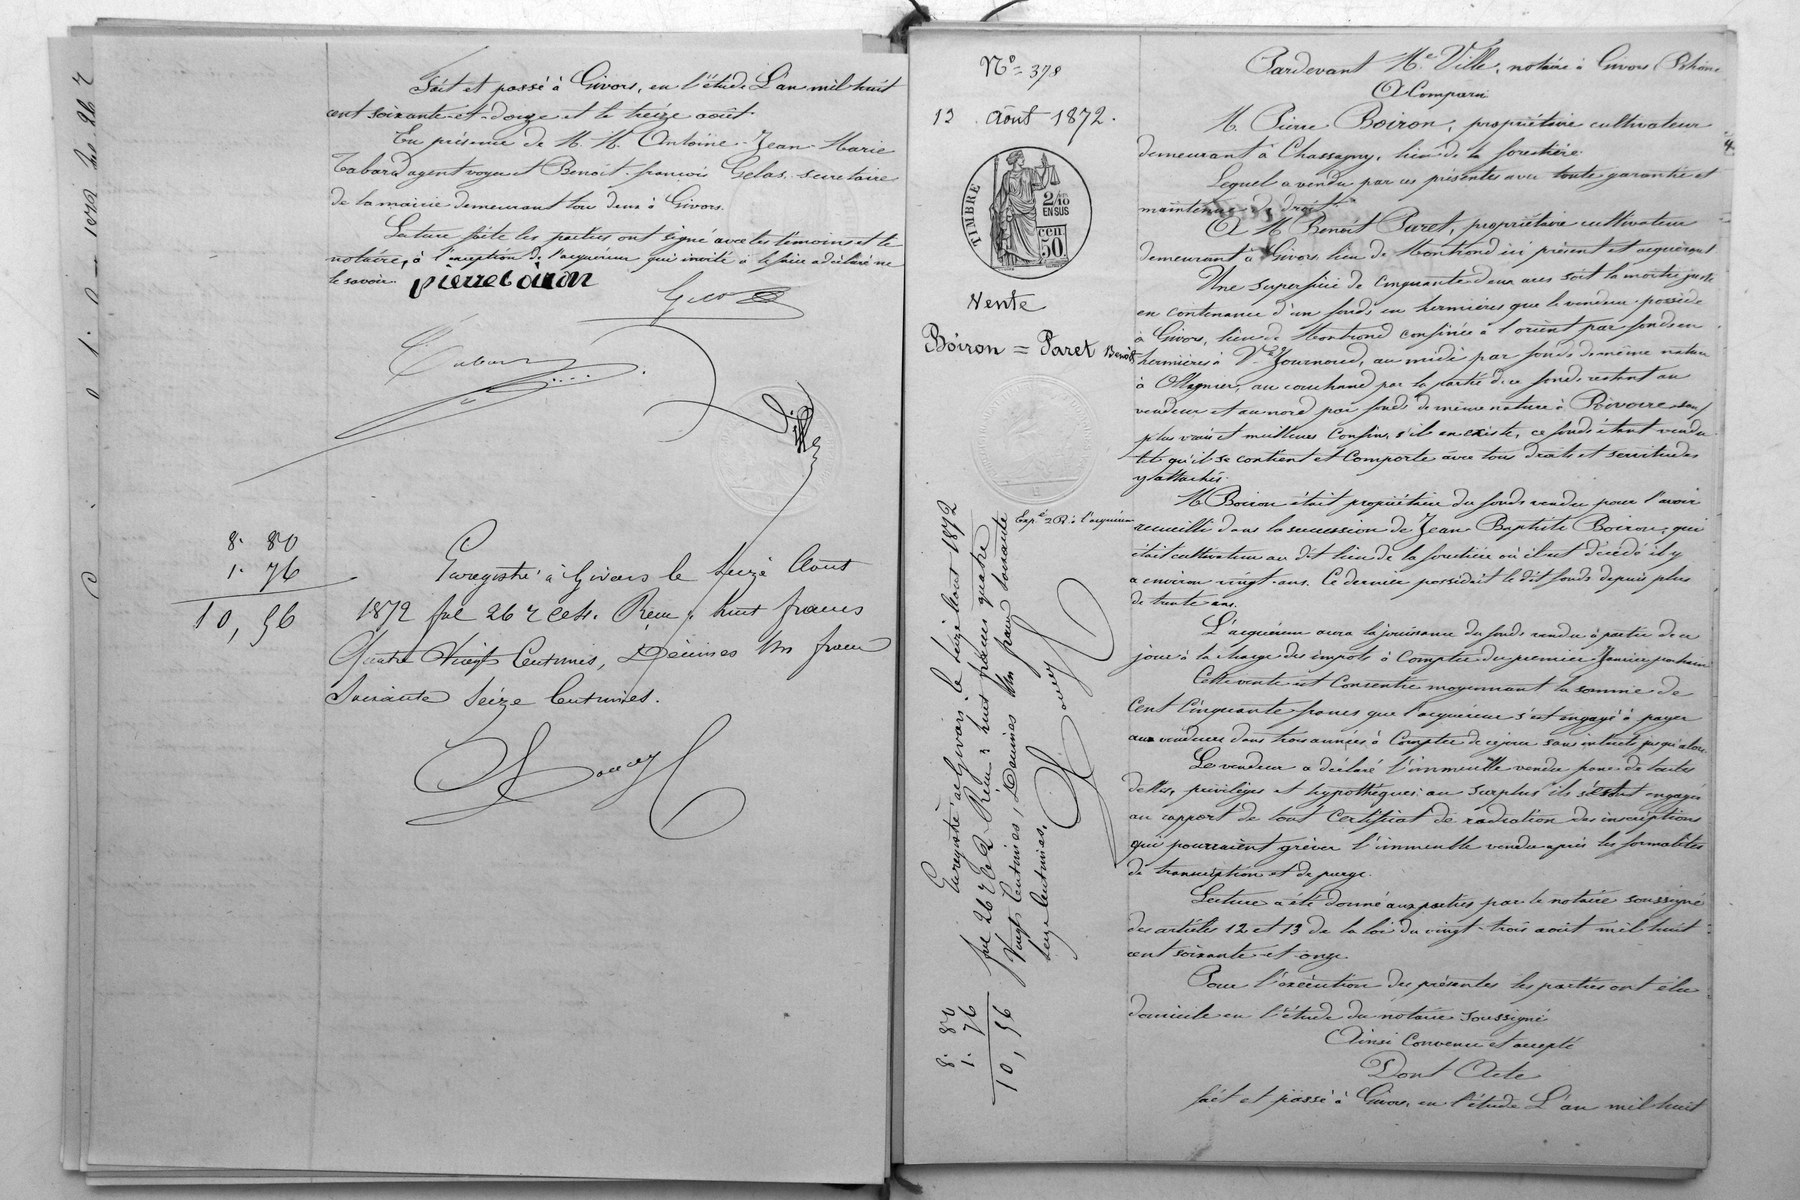 fait et passé à Givors, en l'étude L'an mil huit
cent soixante-et-douze et le treize août.
En présence de M. M. Antoine-Jean-Marie
Tabard agent voyer et Benoit-françois Gelas, secretaire
de la mairie demeurant tous deux à Givors.
Lecture faite les parties ont signé avec les témoins et le
notaire, à l'exception de l'acquéreur qui invité à le faire a déclaré ne
le savoir.
pierre boiron
Gelas
Tabard
Ville
8. 80
1. 76
10, 56
Enregistré à Givors le seize Aout
1872 fol 26 r c 4. Reçu: huit francs
Quatre Vingt Centimes, Décimes Un franc
Soixante Seize Centimes.
N° 378
13 Août 1872.
TIMBRE
2/10
EN SUS
cen
50
Vente
Boiron = Paret Benoît
Exp.é 2 R. à l'acquéreur
Enregistré à Givors le seize Aout 1872
fol 26 r c 2 Reçu: huit francs quatre
Vingt Centimes, Décimes Un franc soixante
seize Centimes.
8. 80
1. 76
10, 56
Pardevant Me Ville, notaire à Givors (Rhône
A Comparu
M. Pierre Boiron, propriétaire cultivateur
demeurant à Chassagny, lieu de la forestière.
Lequel a vendu par ces présentes avec toute garantie et
maintenue de droit.
A M. Benoit Paret, propriétaire cultivateur
demeurant à Givors, lieu de Montrond ici présent et acquérant
Une superficie de cinquante deux ares soit la moitié juste
en contenance d'un fonds en hermières que le vendeur possède
à Givors, lieu de Montrond confinée à l'orient par fonds en
hermières à Vve Journoud, au midi par fonds de même nature
à Ollagnier, au couchant par la partie de ce fonds restant au
vendeur et au nord par fonds de même nature à Rivoire sauf
plus vrais et meilleurs confins, s'il en existe, ce fonds étant vendu
tel qu'il se contient et comporte avec tous droits et servitudes
y attachés.
M. Boiron était propriétaire du fonds vendu pour l'avoir
recueilli dans la succession de Jean Baptiste Boiron, qui
était cultivateur au dit lieu de la forestière où il est décédé il y
a environ vingt-ans. Ce dernier possédait le dit fonds depuis plus
de trente ans.
L'acquéreur aura la jouissance du fonds vendu à partir de ce
jour à la charge des impots à compter du premier Janvier prochain
Cette vente est consentie moyennant la somme de
Cent Cinquante francs que l'acquéreur s'est engagé à payer
aux vendeurs dans trois années à compter de ce jour sans intérêts jusqu'alors.
Le vendeur a déclaré l'immeuble vendu franc de toutes
dettes, privilèges et hypothèques; au surplus ils se sont engagés
au rapport de tout certificat de radiation des inscriptions
qui pourraient gréver l'immeuble vendu après les formalités
de transcription et de purge.
Lecture a été donné aux parties par le notaire soussigné
des articles 12 et 13 de la loi du vingt-trois août mil huit
cent soixante-et-onze.
Pour l'exécution des présentes les parties ont élu
domicile en l'étude du notaire soussigné
Ainsi Convenu et accepté
Dont Acte
fait et passé à Givors, en l'étude L'an mil huit